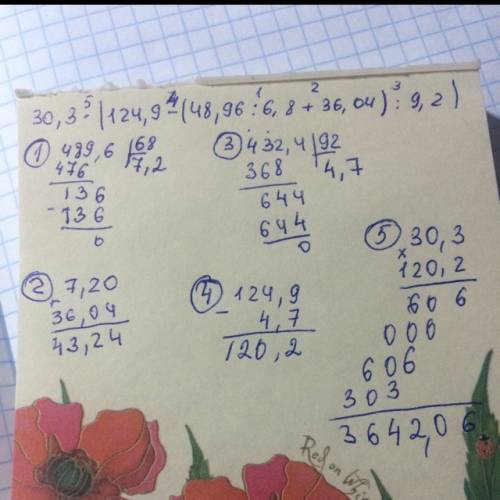 30,3 · (124,9 - (48,96 : 6,8 + 36,04) : 9,2)
5 4 1 2 3
① 489,6 | 68
476 7,2
136
- 136
0
③ 432,4 | 92
368 4,7
644
644
0
② 7,20
+ 36,04
43,24
④ 124,9
- 4,7
120,2
⑤ 30,3
x 120,2
606
000
606
303
3642,06
Red on Whi